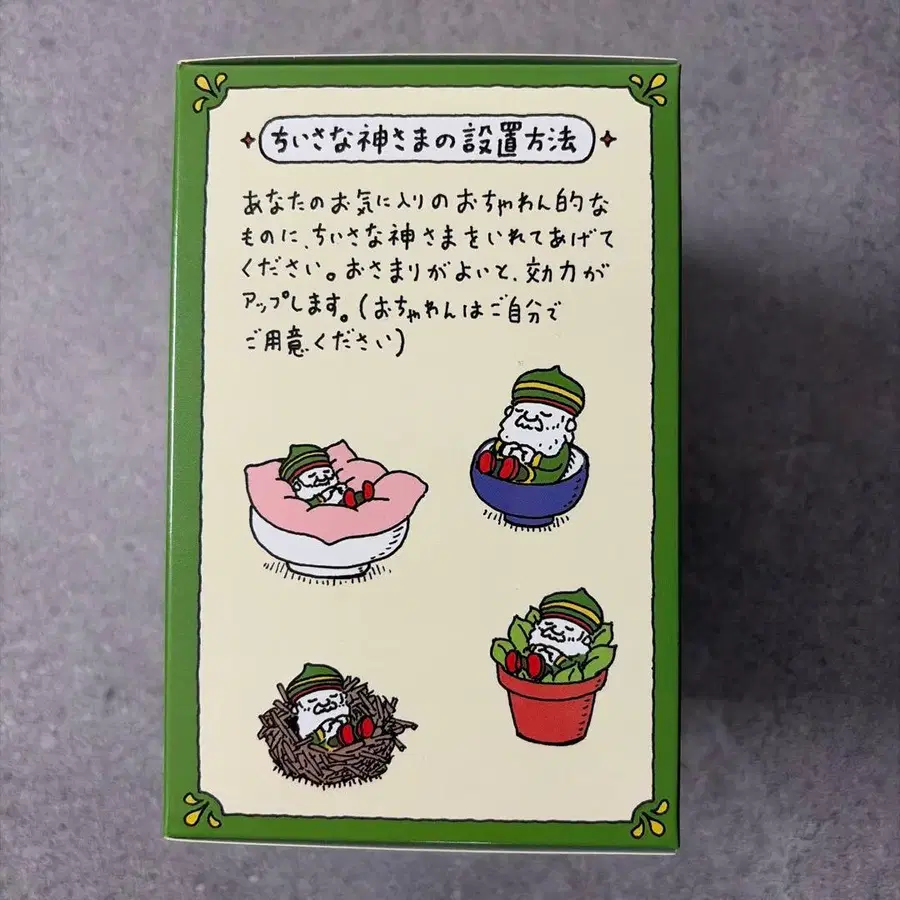 ちいさな神さまの設置方法
あなたのお気に入りのおちゃわん的な
ものに、ちいさな神さまをいれてあげて
ください。おさまりがよいと、効力が
アップします。(おちゃわんはご自分で
ご用意ください)